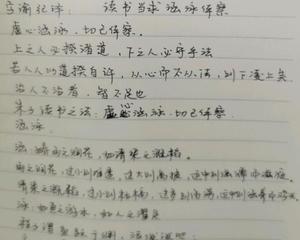 字谕纪泽: 读书当求涵泳体察
虚心涵泳,切己体察.
上之人必揆诸道,下之人必守乎法
若人人以道揆自许,从心而不从法,则下凌上矣
治人不治者,智不足也
朱子读书之法:虚心涵泳 切己体察.
涵泳
涵:如春雨之润花,如清渠之溉稻.
雨之润花,过小则难透,过大则离披,适中则涵濡而滋液.
清渠之溉稻,过小则枯槁,过多则伤涝,适中则涵养而浡兴.
泳:如鱼之游水,如人之濯足
程子谓鱼跃于渊,活泼泼地;